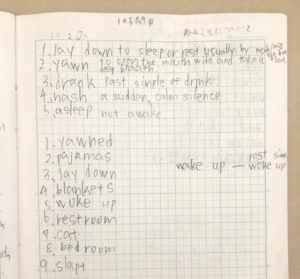 1. lay down to sleep or rest usually by
2. yawn to open the mouth wide and
deep breath
3. drank Past simple of drink
4. hash a sudden, calm silence
5. asleep not awake
1. yawned
2. pajamas
3. lay down
4. blankets
wake up — past
5. woke up
woke up
6. restroom
7. cat
8. bedroom
9. slapt